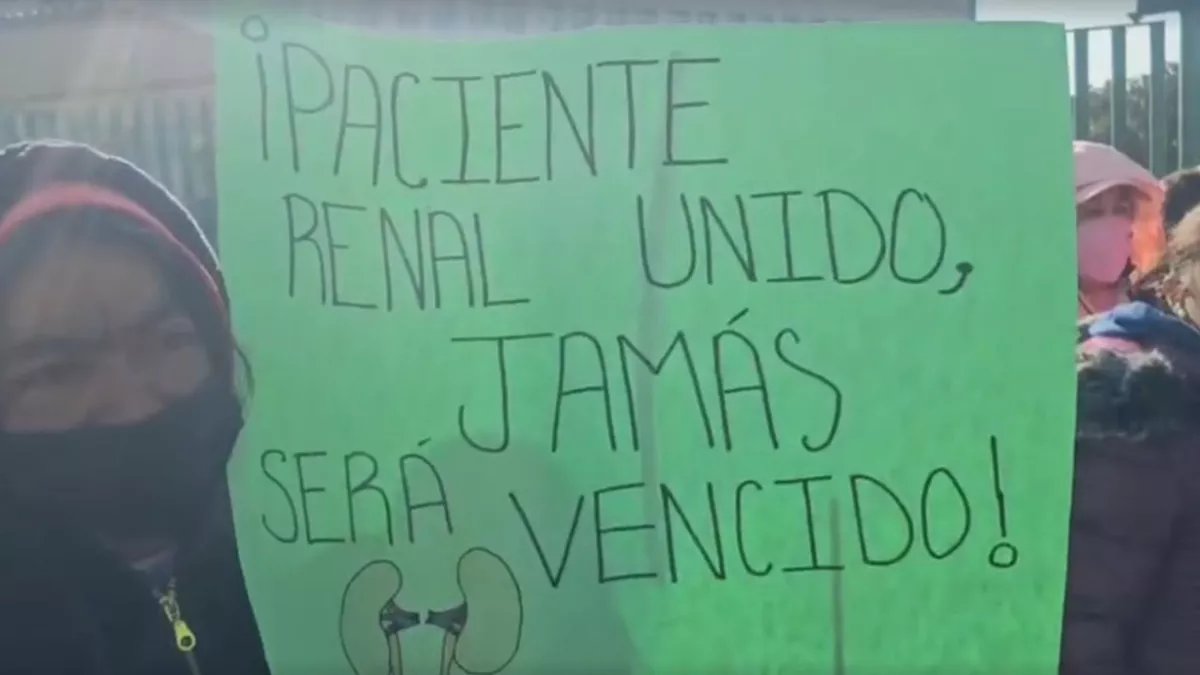 ¡PACIENTE
RENAL UNIDO,
JAMÁS
SERÁ VENCIDO!